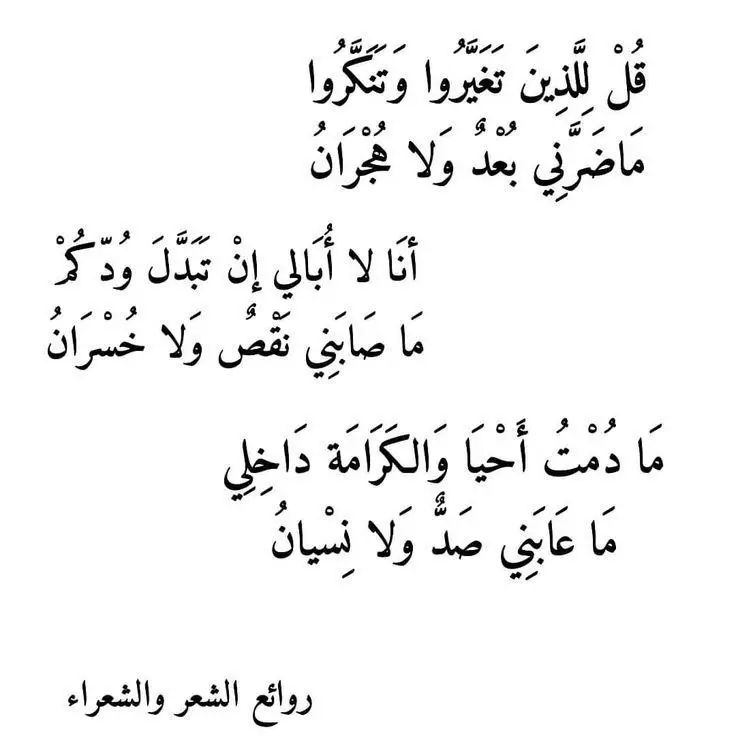 قُلْ لِلَّذِينَ تَغَيَّرُوا وَتَنَكَّرُوا
مَاضَرَّنِي بُعْدٌ وَلا هُجْرَانُ
أنَا لا أُبَالي إنْ تَبَدَّلَ وُدّكُمْ
مَا صَابَنِي نَقْصٌ وَلا خُسْرَانُ
مَا دُمْتُ أَحْيَا وَالكَرَامَة دَاخِلِي
مَا عَابَنِي صَدٌّ وَلا نِسْيانُ
روائع الشعر والشعراء